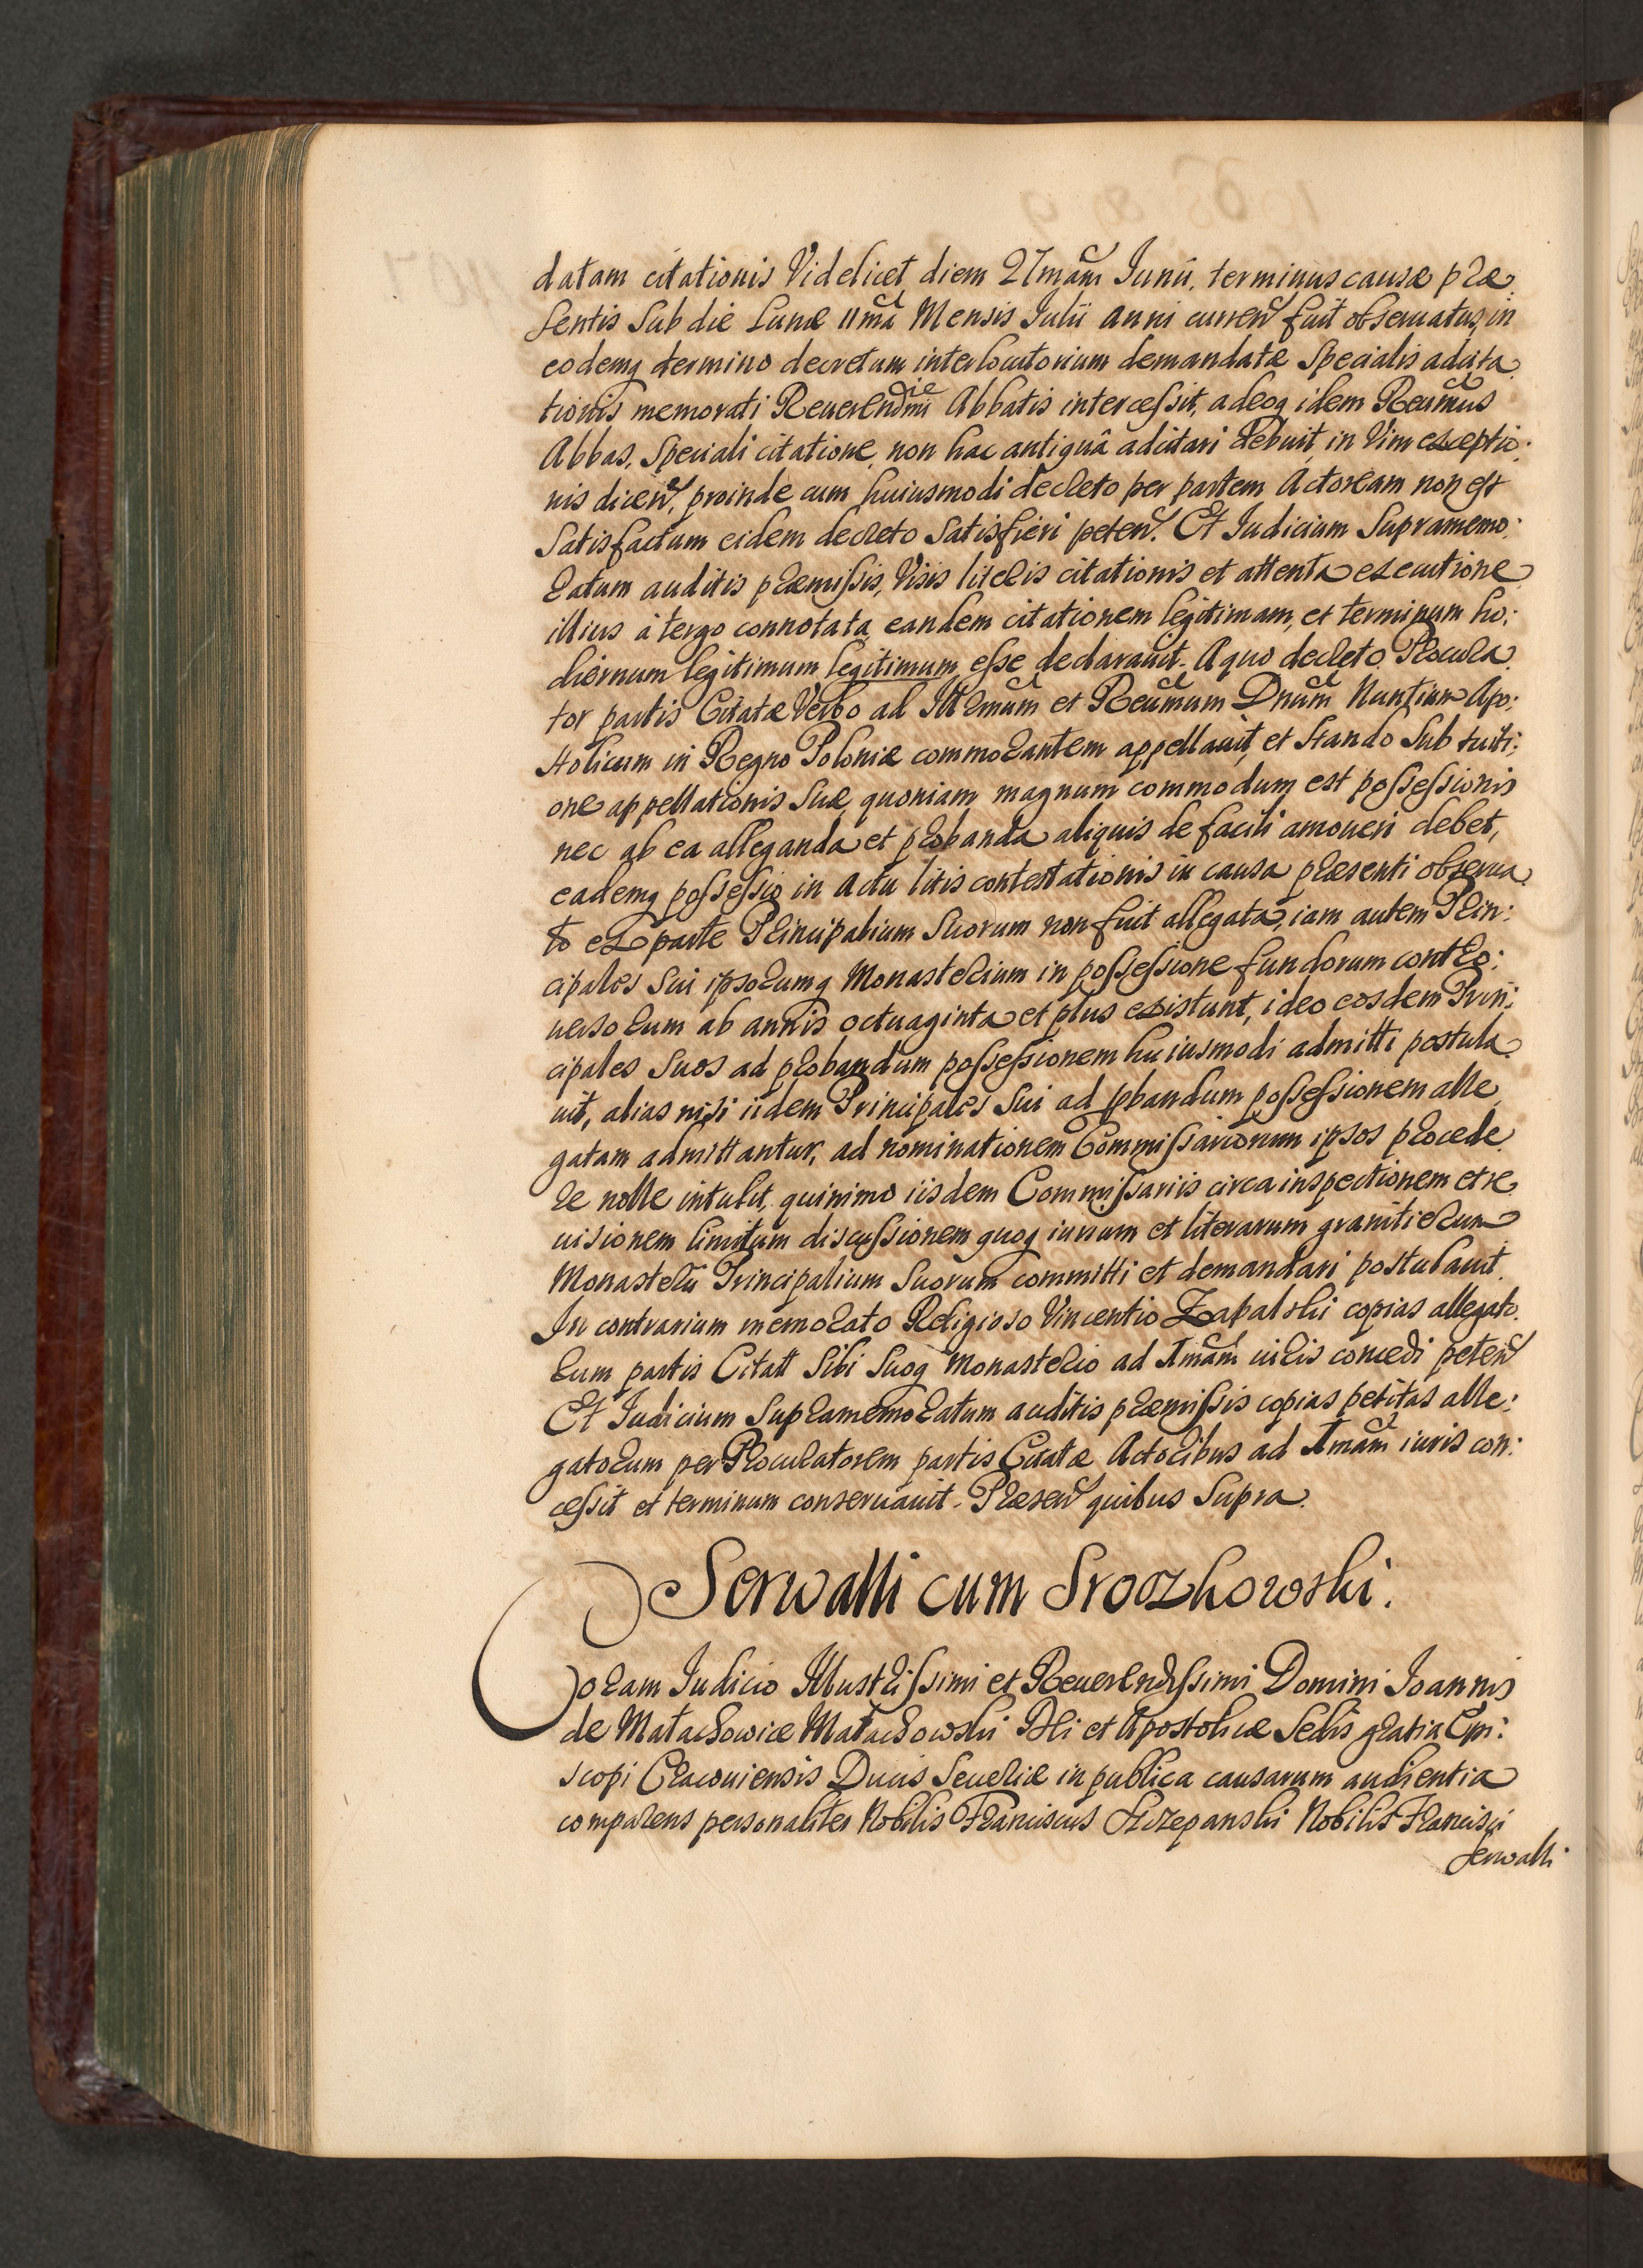 datam citationis Videlicet diem 27mam Iunii. terminus causæ præ:
sentis sub die Lunæ 11ma Mensis Iulii anni curren fuit obseruatus, in
eodemq termino decretum interlocutorium demandatæ specialis adcita
tionis memorati Reuerendmi Abbatis intercessit, adeoq idem Reumus
Abbas, speciali citatione non hac antiquâ adcitari debuit, in Vim exceptio:
nis dicen, proinde cum huiusmodi decreto per partem Actoream non est
Satisfactum eidem decreto satisfieri peten. Et Iudicium Supramemo:
ratum auditis præmissis, Visis literis citationis et attenta executione
illius à tergo connotata, eandem citationem legitimam, et terminum ho:
diernum legitimum legitimum esse declarauit. A quo decreto Procura
tor partis Citatæ Verbo ad Illrmum et Reumum Dnum Nuntium Apo:
stolicum in Regno Poloniæ commorantem appellauit, et stando sub tuiti:
one appellationis suæ, quoniam magnum commodum est possessionis
nec ab ea alleganda et probanda aliquis de facili amoueri debet,
eademq possessio in actu litis contestationis in causa præsenti obserua
to ex parte Principalium suorum non fuit allegata, iam autem Prin:
cipales sui ipsorumq Monasterium in possessione fundorum contro:
uersorum ab annis octuaginta et plus existunt, ideo eosdem Prin:
cipales suos ad probandum possessionem huiusmodi admitti postula
uit, alias nisi iidem Principales sui ad pbandum possessionem alle
gatam admittantur, ad nominationem Commissariorum ipsos procede
re nolle intulit, quinimo iisdem Commissariis circa inspectionem et re
uisionem limitum discussionem quoq iurium et literarum granitierum
Monasterii Principalium suorum committi et demandari postulauit.
In contrarium memorato Religioso Vincentio Zapalski copias allegato
rum partis Citatt sibi suoq Monasterio ad Imam iuris concedi peten
Et Iudicium Supramemoratum auditis præmissis copias petitas alle:
gatorum per Procuratorem partis Citatæ Actoribus ad Imam iuris con:
cessit et terminum conseruauit. Præsen quibus supra.
Serwatti cum Sroczkowski.
Coram Iudicio Illustrissimi et Reuerendissimi Domini Ioannis
de Małachowice Małachowski Dei et Apostolicæ Sedis gratia Epi:
scopi Cracouiensis Ducis Seueriæ in publica causarum audientia
comparens personaliter Nobilis Franciscus Szczepanski Nobilis Francisci
Serwatti